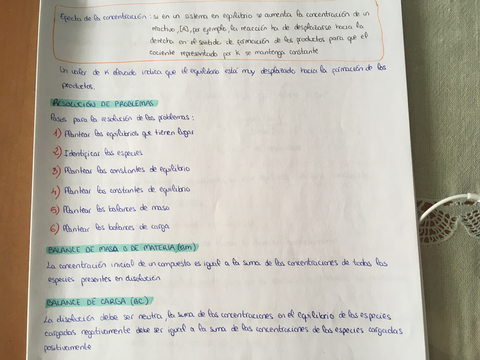 Efecto de la concentración: si en un sistema en equilibrio se aumenta la concentración de un
reactivo, [A], por ejemplo, la reacción ha de desplazarse hacia la
derecha en el sentido de formación de los productos para que el
cociente representado por K se mantenga constante
Un valor de K elevado indica que el equilibrio está muy desplazado hacia la formación de los
productos.
RESOLUCIÓN DE PROBLEMAS
Pasos para la resolución de los problemas:
1) Plantear los equilibrios que tienen lugar
2) Identificar las especies
3) Plantear las constantes de equilibrio
4) Plantear las constantes de equilibrio
5) Plantear los balances de masa
6) Plantear los balances de carga
BALANCE DE MASA O DE MATERIA (BM)
La concentración inicial de un compuesto es igual a la suma de las concentraciones de todas las
especies presentes en disolución
BALANCE DE CARGA (BC)
La disolución debe ser neutra, la suma de las concentraciones en el equilibrio de las especies
cargadas negativamente debe ser igual a la suma de las concentraciones de las especies cargadas
positivamente